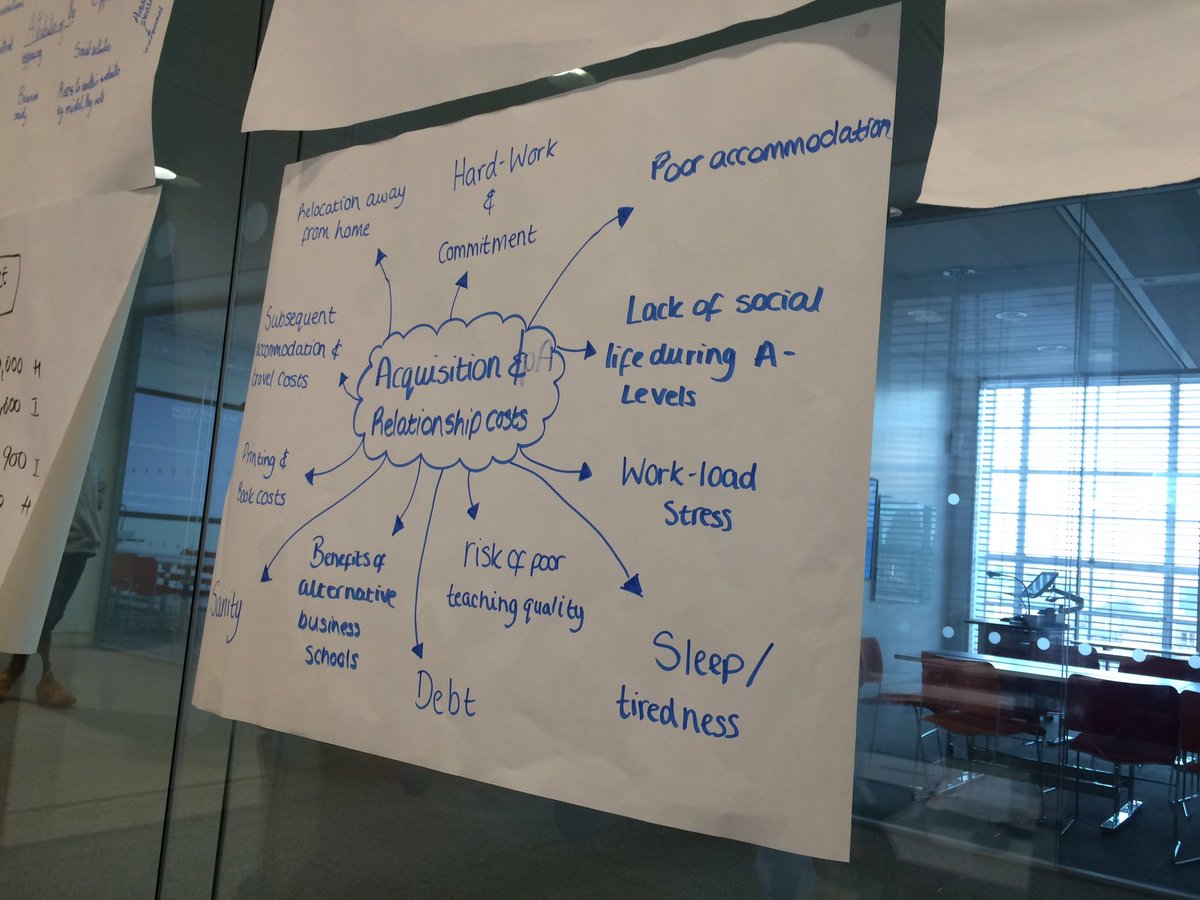 Social activities
Access to certain websites
Hard-Work
&
Commitment
Poor accommodation
Relocation away
from home
Subsequent
accommodation &
travel costs
Acquisition &
Relationship costs
Lack of social
life during A-
Levels
Printing &
Book costs
Work-load
Stress
Sanity
Benefits of
alternative
business
Schools
risk of poor
teaching quality
Debt
Sleep/
tiredness
900 I